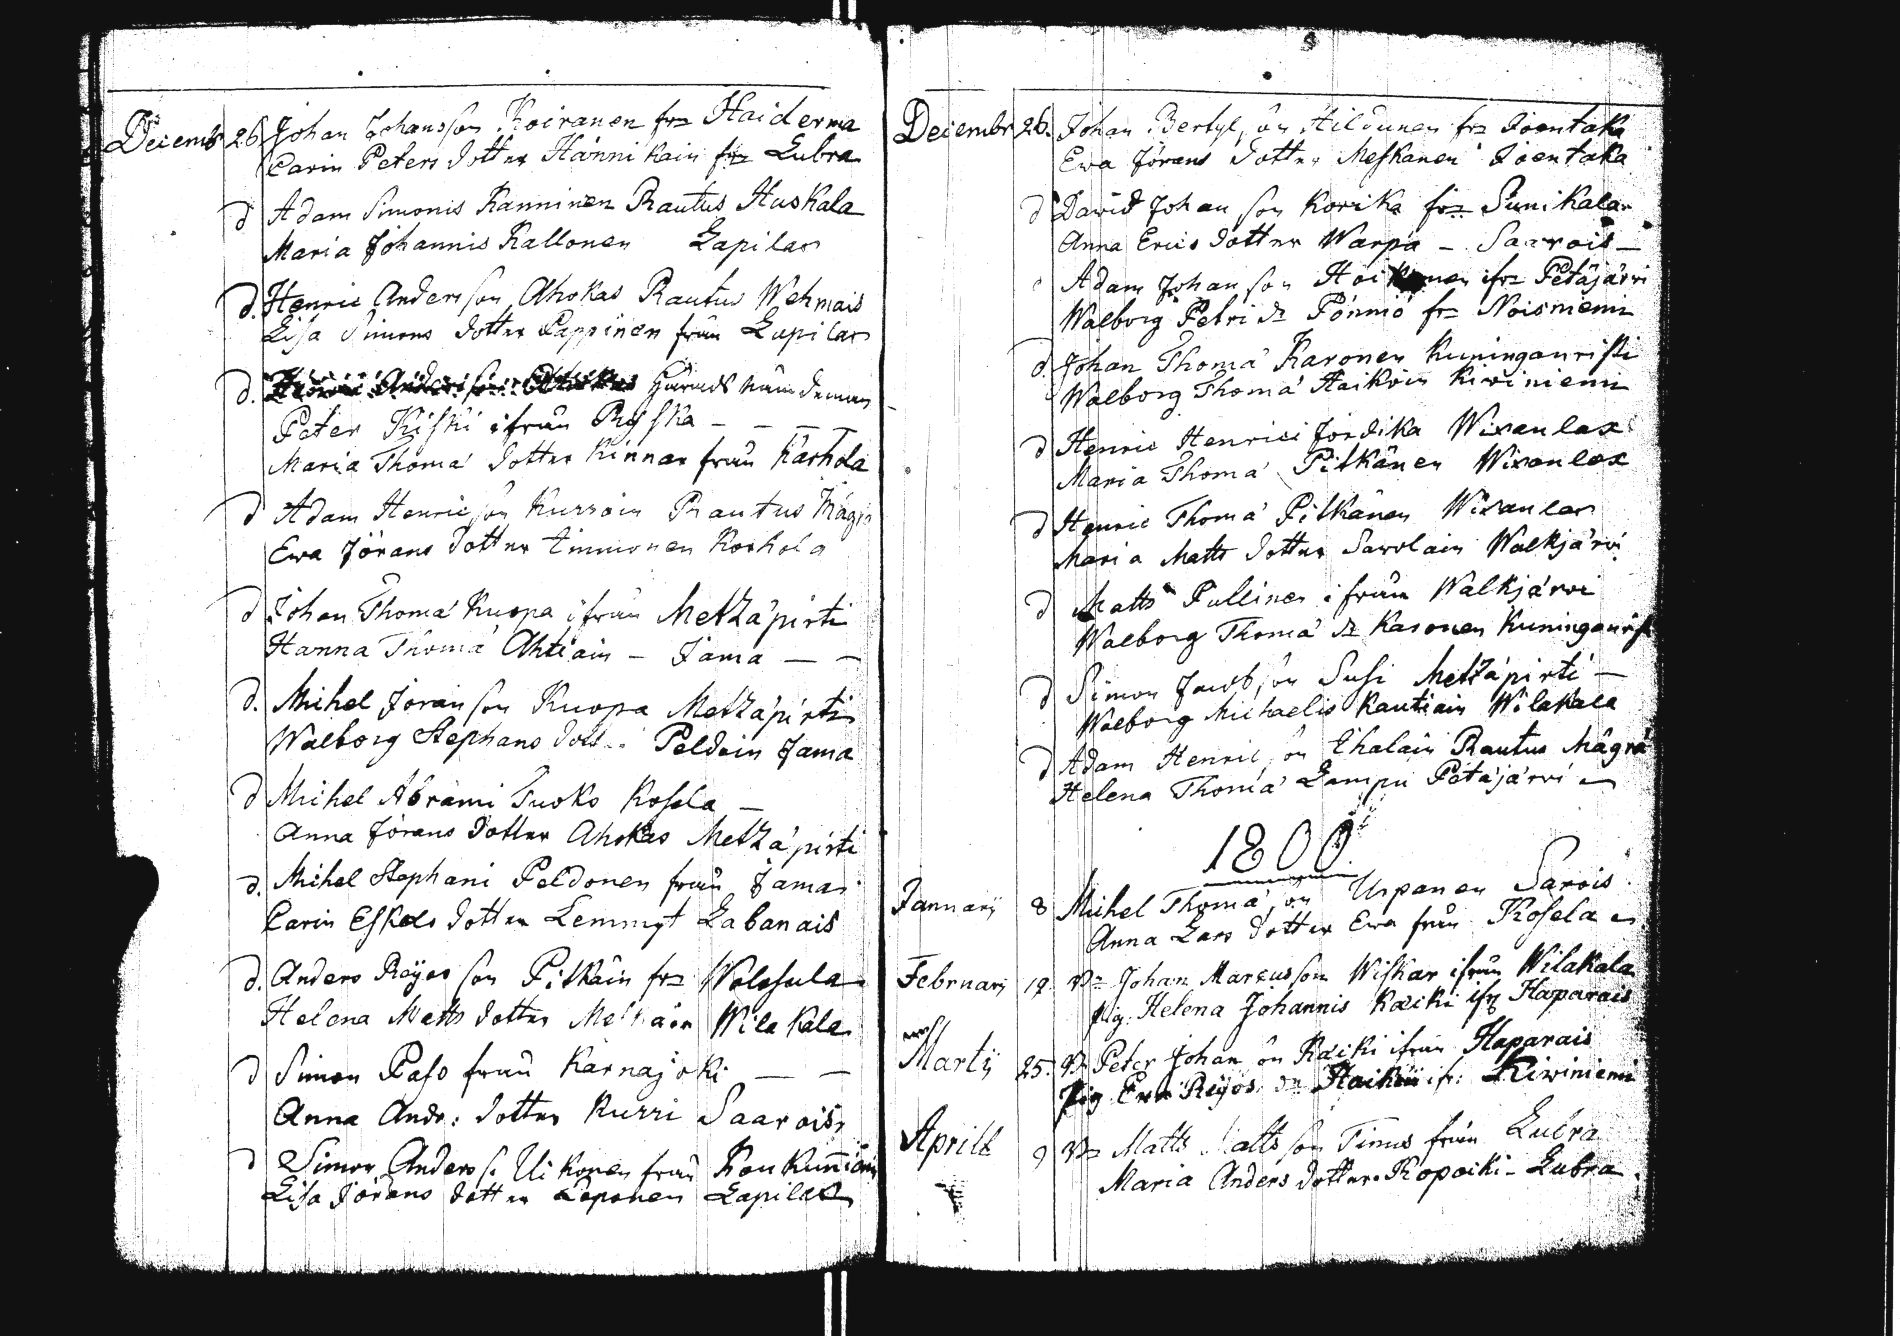 Decembr 26 Johan Johansson Koiranen frn Haiderma
Carin Peters dotter Hännikain frn Lubra
d Adam Simonis Ranninen Rautus Huskala
Maria Johannis Kallonen Lapilax
d. Henric Andersson Ahokas Rautus Wehmais
Lisa Simons dotter Pappinen från Lapilax
d. Härads nämdeman
Peter Kiski ifrån Ryska – – –
Maria Thomæ dotter Kinnar från Karhola
d Adam Henricsson Kurroin Rautus Mägr
Ewa Jörans dotter Timmonen Korhola
d Johan Thomæ Kuopa ifrån Metzäpirti
Hanna Thomæ Ahtiain – Jama – –
d. Michel Jöransson Kuopa Metzäpirti
Walborg Stephans dott Peldoin Jama
d Michel Abrami Tuoko Kosela –
Anna Jörans dotter Ahokas Metzäpirti
d. Michel Stephani Peldonen från Jama
Carin Eskels dotter Lemmyt Labanais
d. Anders Reijos son Pitkäin frn Wolosula
Helena Matts dotter Wilakala
d Simon Paso från Karnajoki – –
Anna Andr: dotter Kurri Saarois
d Simon Anders s. Uikonen från Roukunniemi
Lisa Jörans dotter Loponen Lapilax
Decembr 26. Johan Bertilsson Hildunen frn Joentaka
Ewa Jörans dotter Meskanen Joentaka
d David Johansson Korika frn Sunikala
Anna Erics dotter Warpa – Saarois –
Adam Johansson ifrn Petäjärvi
Walborg Petri dr Pönniö frn Noisniemi
d. Johan Thomæ Karonen Kuninganristi
Walborg Thomæ Haikoin Kiviniemi
d Henric Henrici Jordika Wixanlax
Maria Thomæ Pitkänen Wixanlax
d Henric Thomæ Pitkänen Wixanlax
Maria Matts dotter Savolain Walkjärvi
d Matts Pullinen ifrån Walkjärvi
Walborg Thomæ dr Karonen Kuninganrist
d Simon Jacobsson Susi Metzäpirti –
Walborg Michaelis Rautiain Wilakala
d Adam Henricsson Ihalain Rautus Mägrä
Helena Thomæ Lampu Petäjärvi
1800
Januarij 8 Michel Thomæson Urpanen Sarois
Anna Lars dotter Ewa från Kosela
Februarij 19. Dr Johan Marcusson Wiskar ifrån Wilakala
pig. Helena Johannis Kæiki ifrn Haparais
Martij 25. Dr Peter Johansson Kæiki ifrån Haparais
Pig Ewa Reijos dr Haikoi ifr: Kiviniemi
Aprill 9 Dr Matts Mattsson Timus från Lubra
Maria Anders dotter Kopoiki – Lubra